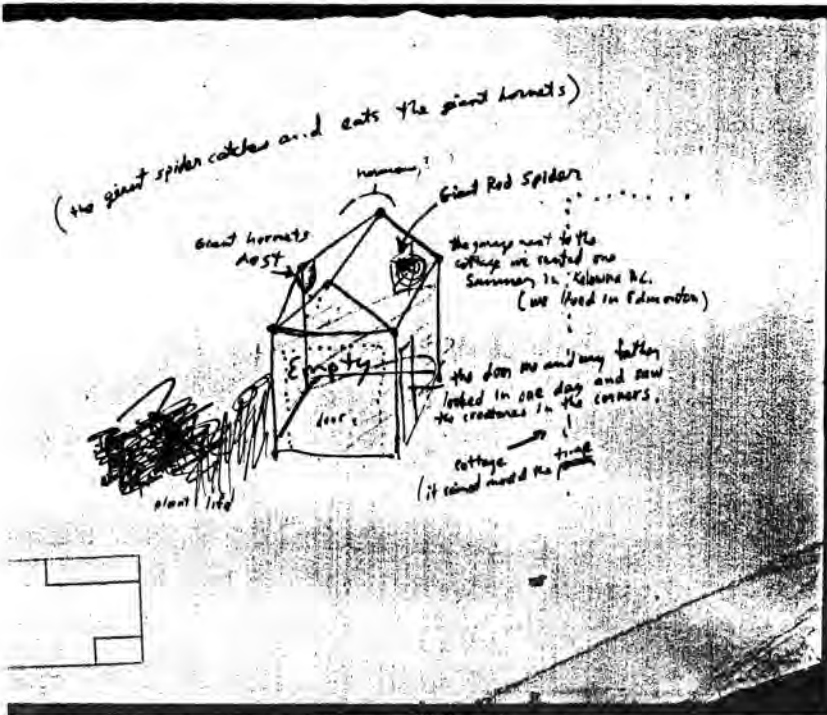 (the giant spider catches and eats the giant hornets)
Giant Red Spider
Giant hornets
nest
the garage next to the
cottage we rented one
Summer in Kelowna B.C.
(we lived in Edmonton)
Empty
door
the door me and my father
looked in one day and saw
the creatures in the corners.
cottage
(it rained most of the time
plant life